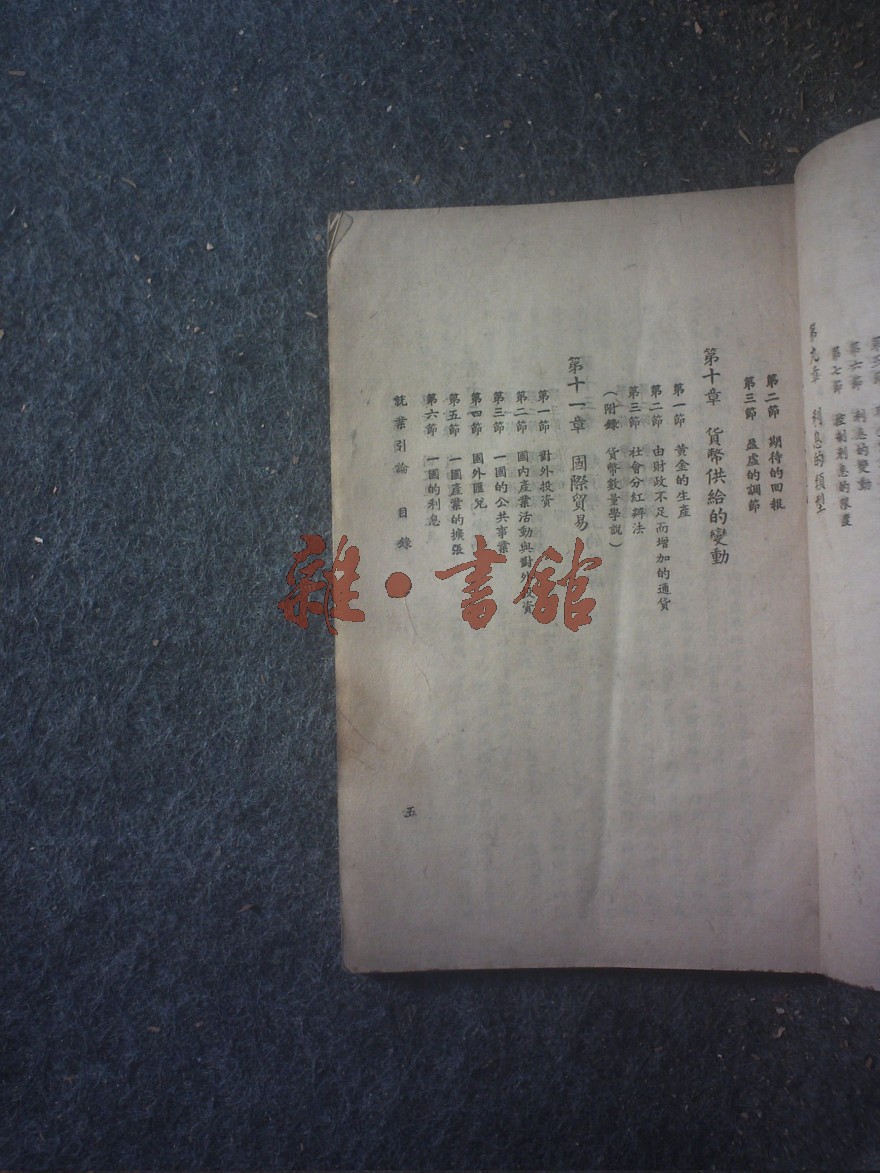 第六節　利息的變動
第七節　控制利息的限度
第九章　利息的類型
第二節　期待的回報
第三節　盈虛的調節
第十章　貨幣供給的變動
第一節　黃金的生產
第二節　由財政不足而增加的通貨
第三節　社會分紅辦法
（附錄　貨幣數量學説）
第十一章　國際貿易
第一節　對外投資
第二節　國內產業活動與對外投資
第三節　一國的公共事業
第四節　國外匯兌
第五節　一國產業的擴張
第六節　一國的利息
就業引論　目錄
五
雜·書館